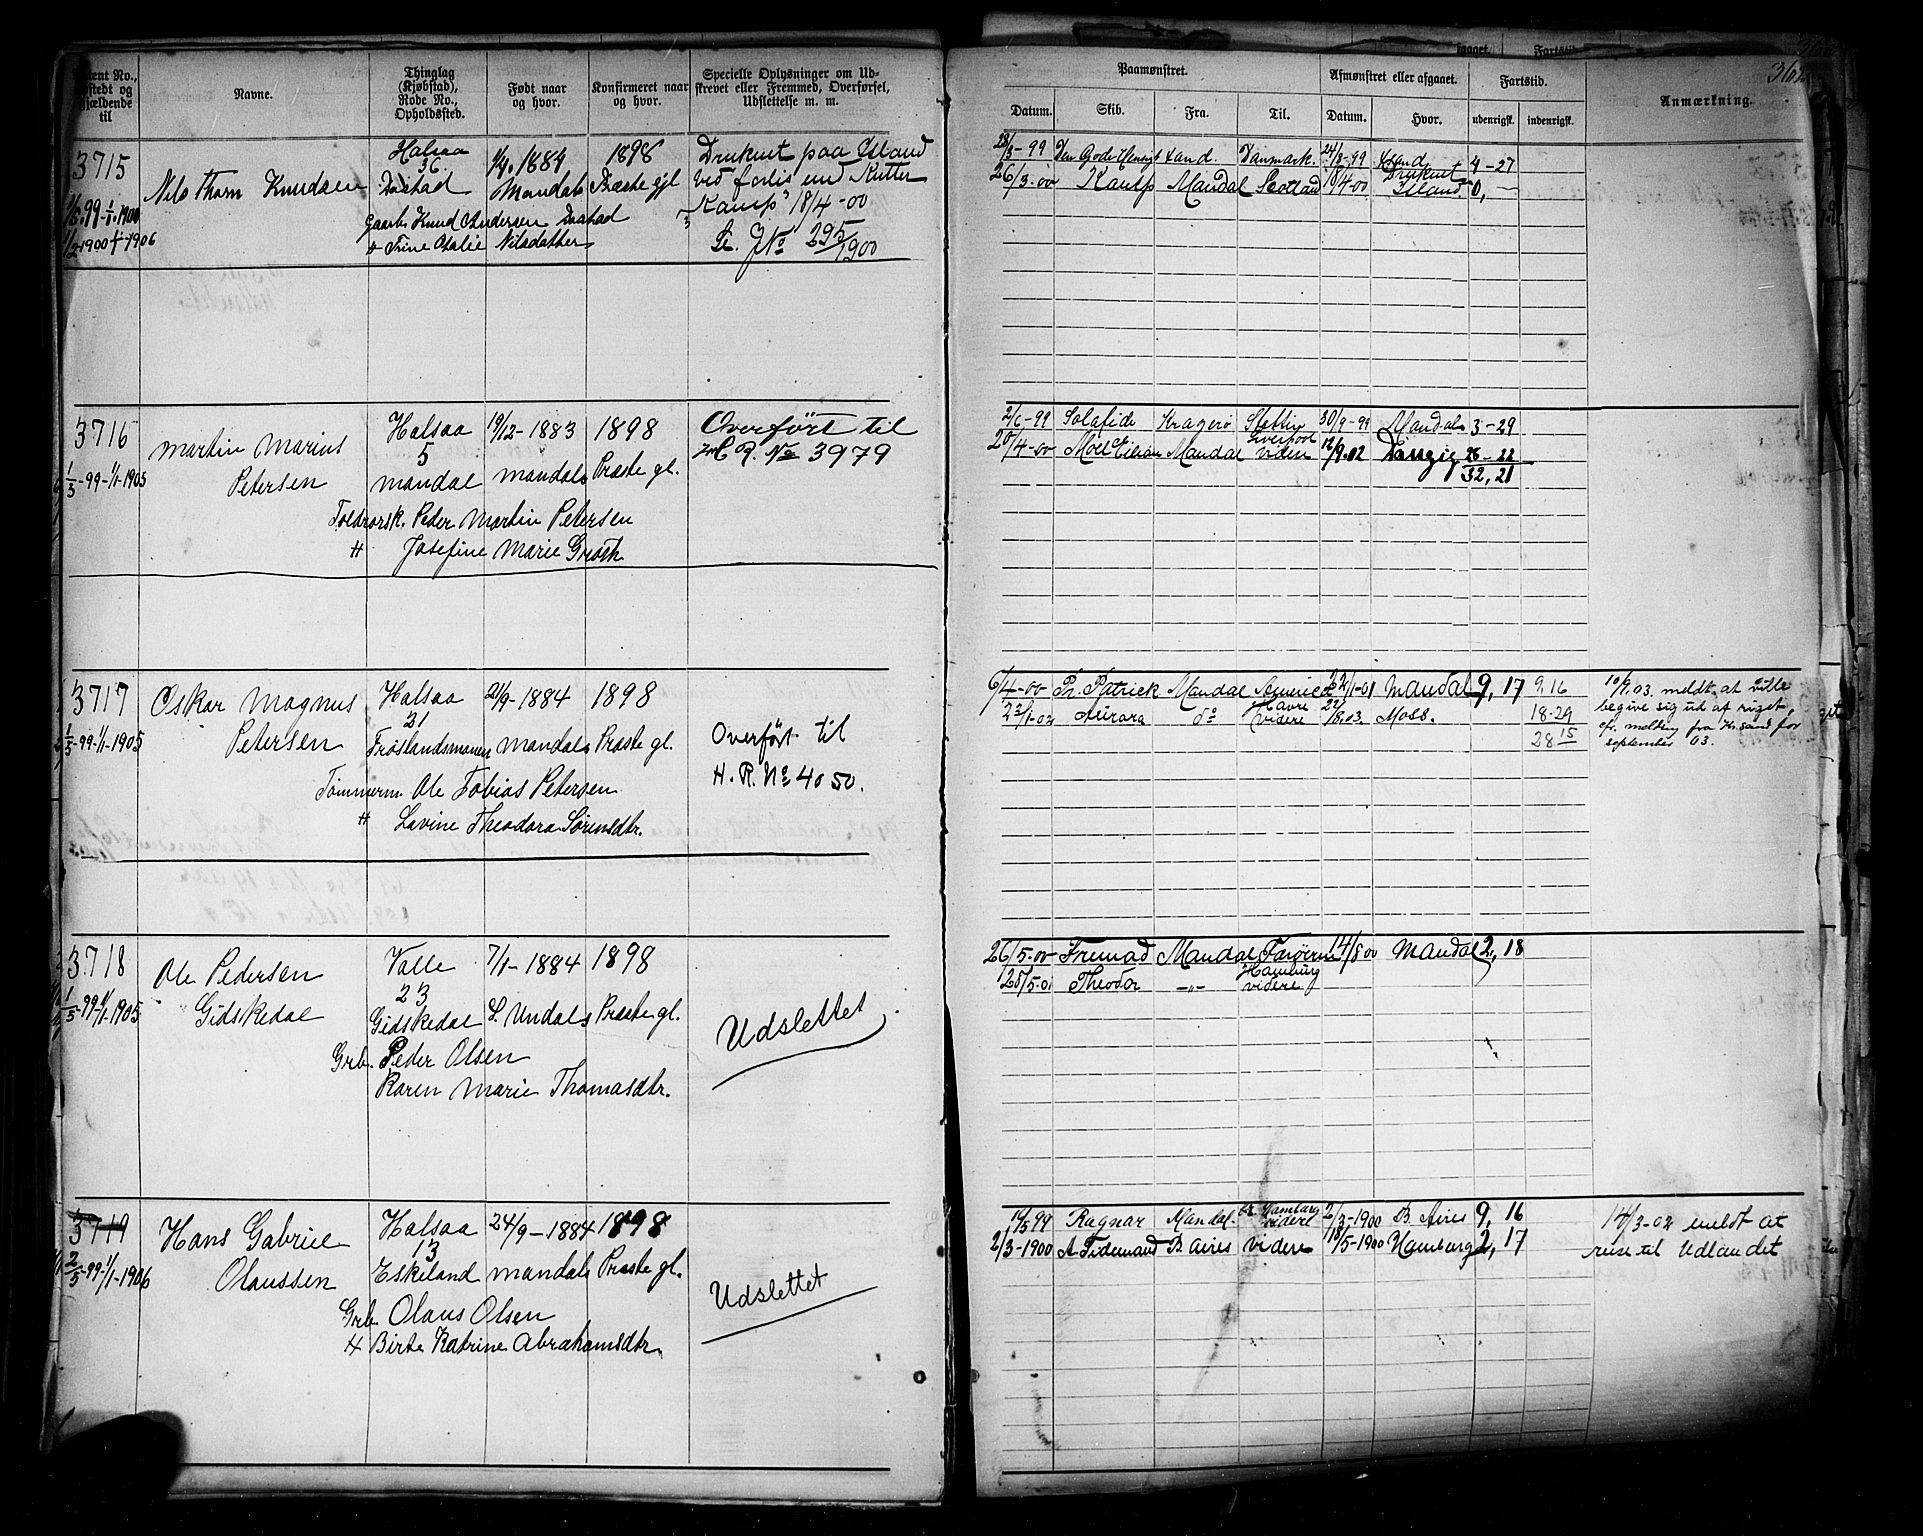 Patent No.,
udstedt og
gjældende
til
Navne.
Thinglag
(Kjøbstad),
Rode No.,
Opholdssted.
Født naar
og hvor.
Konfirmeret naar
og hvor.
Specielle Oplysninger om Ud-
skrevet eller Fremmed, Overførsel,
Udslettelse m. m.
3715
1/1-1900
1/1-1906
Nils Thorn Knudsen
Halsaa
36
Dastad
1884
Mandals
1898
Præste gjl
Gaarbr. Knud Andersen Dastad
Trine Otalie Nilsdatter
Druknet paa Island
ved forlis med Kutter
"Kamp" 18/4-00
Se. J No 295/1900
3716
1/5-99-1/1-1905
Martin Marius
Petersen
Halsaa
5
Mandal
19/12-1883
Mandals
1898
Præste gl.
Toldrorsk. Peder Martin Petersen
H Josefine Marie
Overført til
H. R. No 3979
3717
1/5-99-1/1-1905
Oskar Magnus
Petersen
Halsaa
31
Frøislandsmonen
21/9-1884
Mandals
1898
Præste gl.
Tømmerm. Ole Tobias Petersen
H Lavine Theodora Sørensdtr.
Overført til
H. R. No 4050.
3718
1/5-99-1/1-1905
Ole Pedersen
Gidskedal
Valle
23
Gidskedal
7/1-1884
S. Undals
1898
Præste gl.
Grb. Peder Olsen
Karen Marie Thomasdtr.
Udslettet
3719
2/5-99-1/1-1906
Hans Gabriel
Olaussen
Halsaa
13
Eskeland
24/9-1884
Mandals
1898
Præste gl.
Grb. Olaus Olsen
H Birte Katrine Abrahamsdtr.
Udslettet
Paamønstret.
Afmønstret eller afgaaet.
Fartstid.
Anmærkning.
Datum.
Skib.
Fra.
Til.
Datum.
Hvor.
udenrigsk.
indenrigsk.
28/3-99 Den Gode Hensigt Xsand. Danmark. 24/8-99 Xsand 4-27
26/3-00 Kamp Mandal Scotland 18/4-00 Druknet Island 0,
2/6-99 Solafide Kragerø Stettin 30/9-99 Mandal 3-29
20/4-00 Moel Eilian Mandal Liverpool videre 12/9.02 Danzig 28-22
32,21
6/4-00 Pr. Patrick Mandal America 22/1-01 Mandal 9,17 9,16
23/1-02 Aurora do Havre videre 22/8.03. Moss. 18-29
28 15
10/9.03. meldt at ville
begive sig ud af riget,
cfr. melding fra Kr.sand for
september 03.
26/5-00 Frunad Mandal Færøerne 14/8 00 Mandal 2,18
28/5-01 Theodor -„- Hamburg videre
19/5 99 Ragnar Mandal. Hamburg videre 2/3-1900 B. Aires 9,16
2/3-1900 A. Tidemand B. Aires videre 18/5-1900 Hamburg 2,17
14/3-02 meldt at
reise til Udlandet